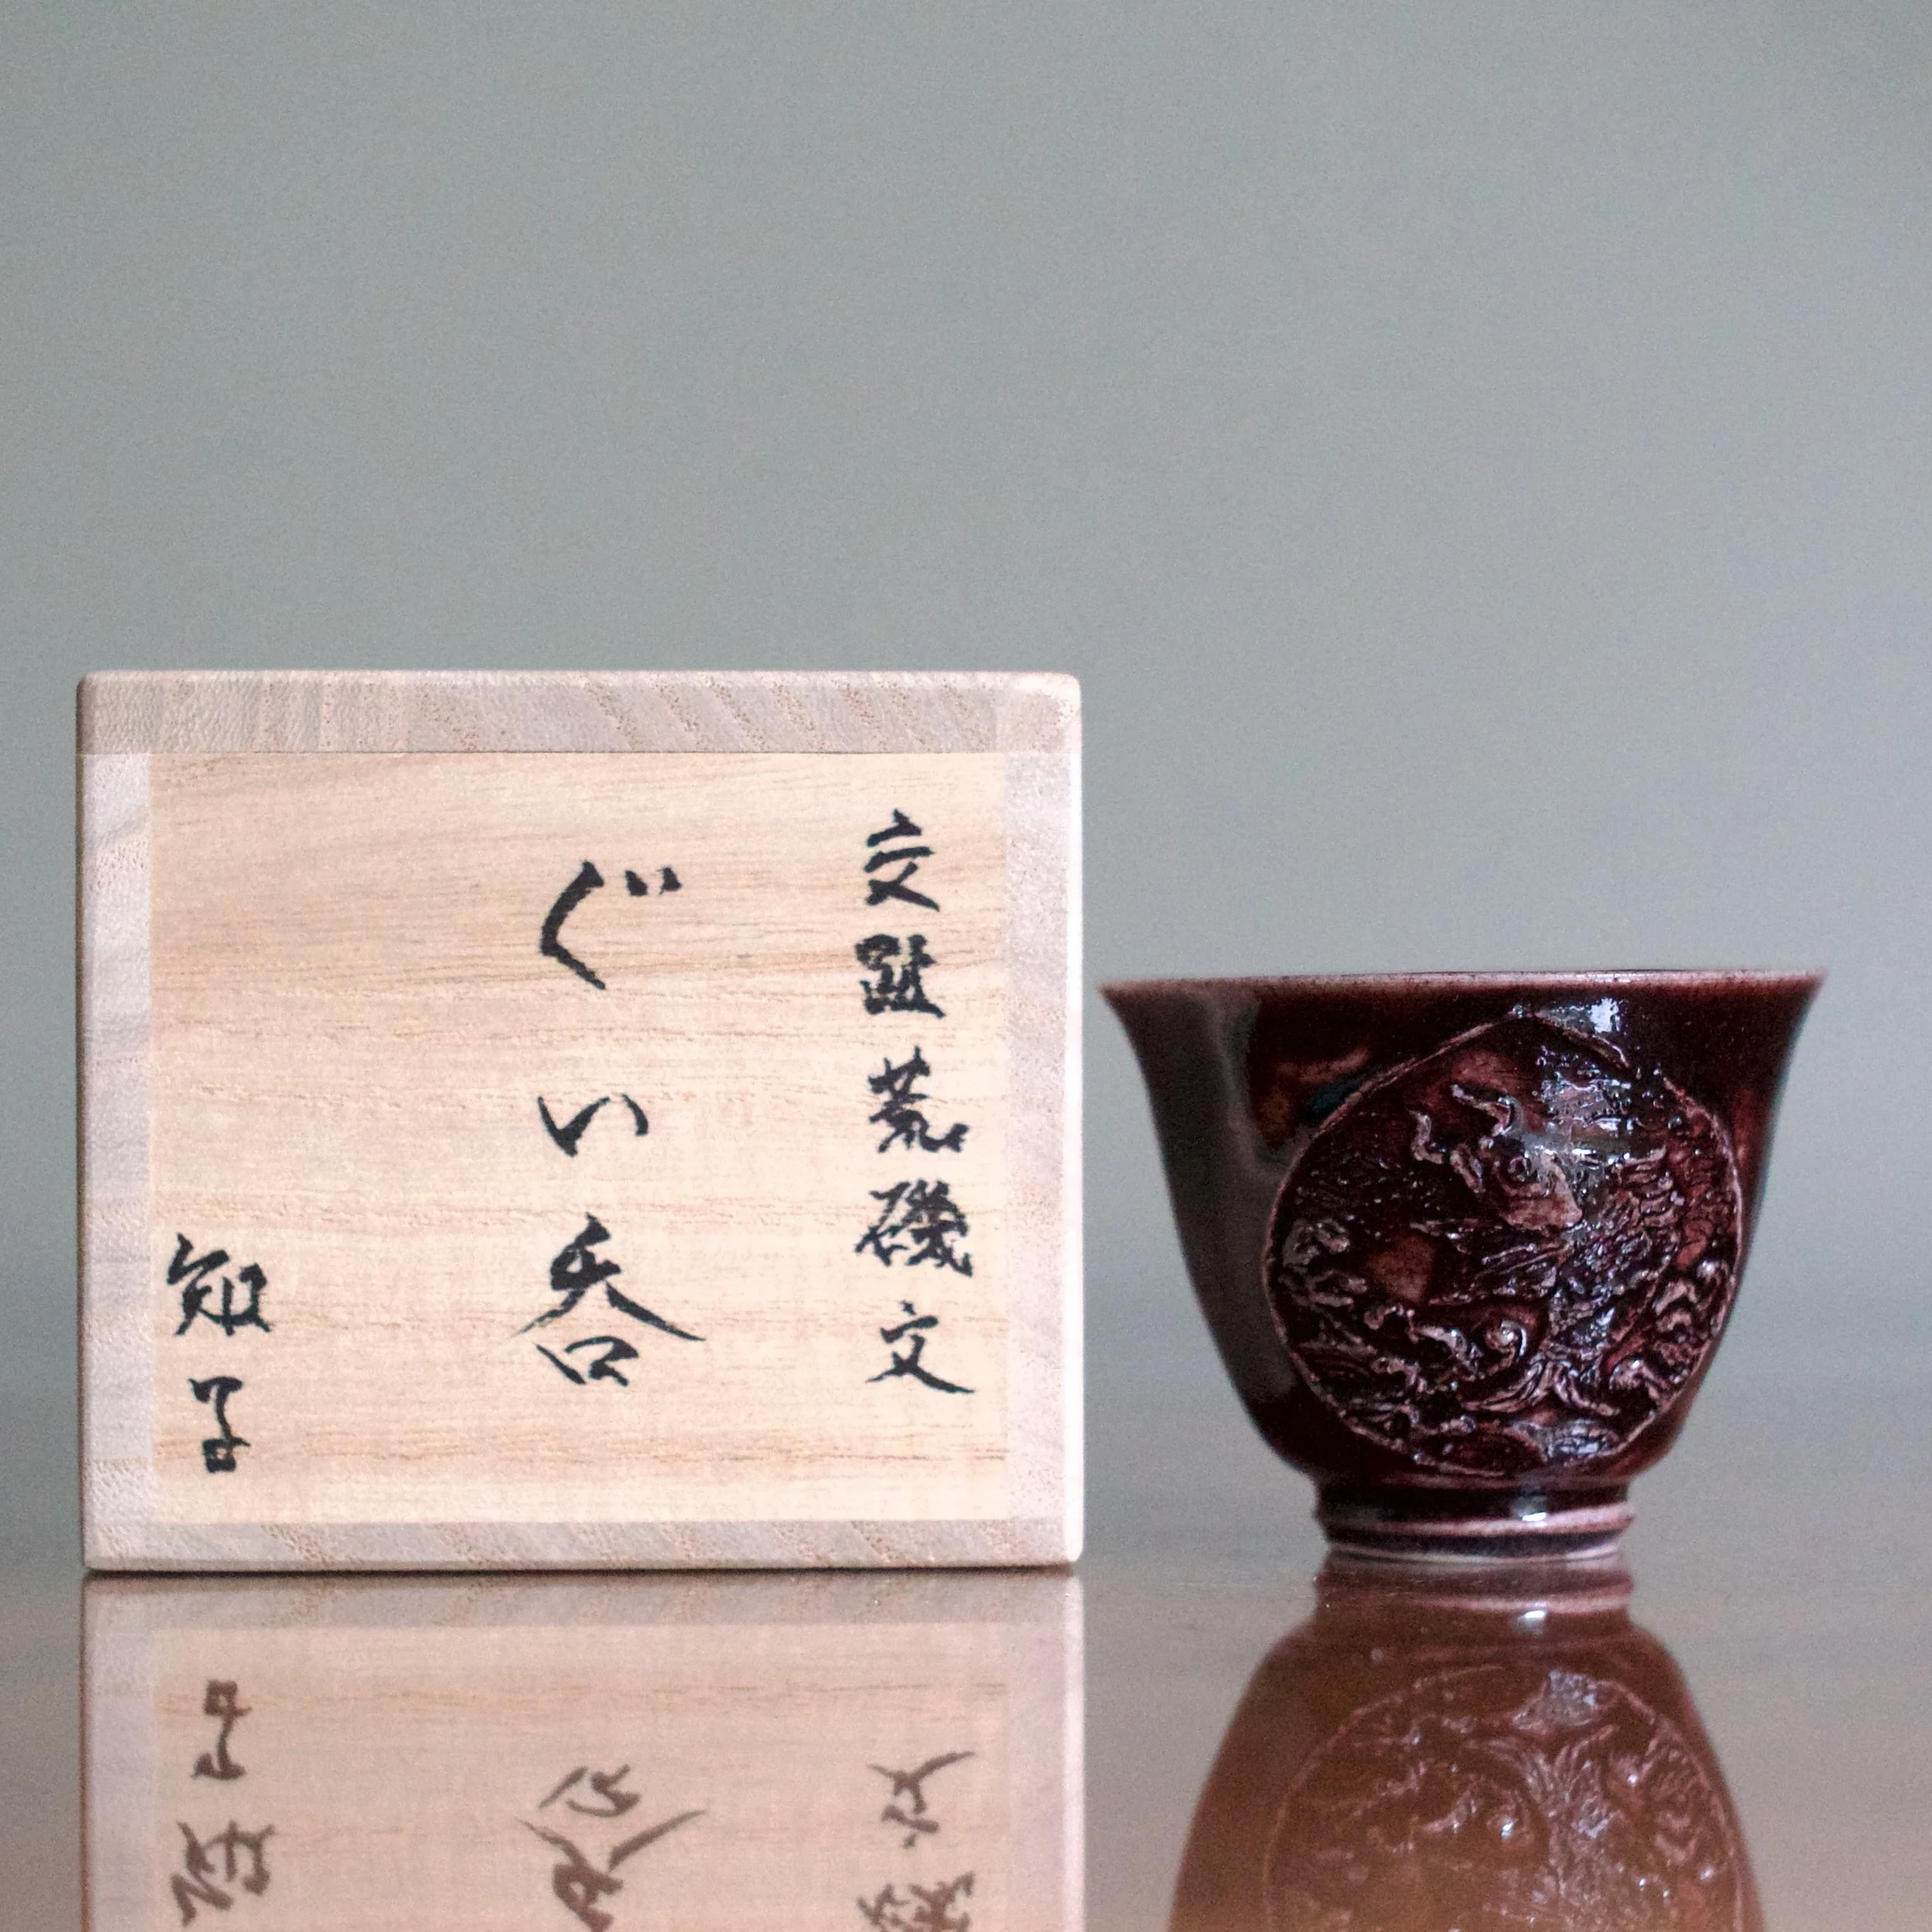 交趾荒磯文
ぐい呑